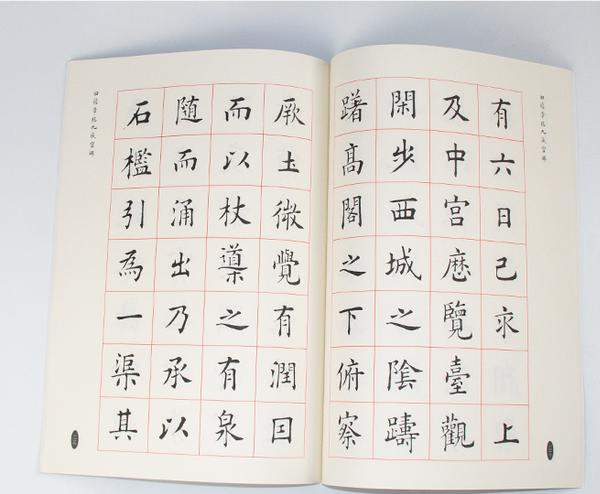 田蕴章临九成宫碑
有六日己亥上
及中宫歷覽臺觀
閑步西城之陰躊
躇高閣之下俯察
厥土微覺有潤因
而以杖導之有泉
随而涌出乃承以
石檻引為一渠其
田蕴章临九成宫碑